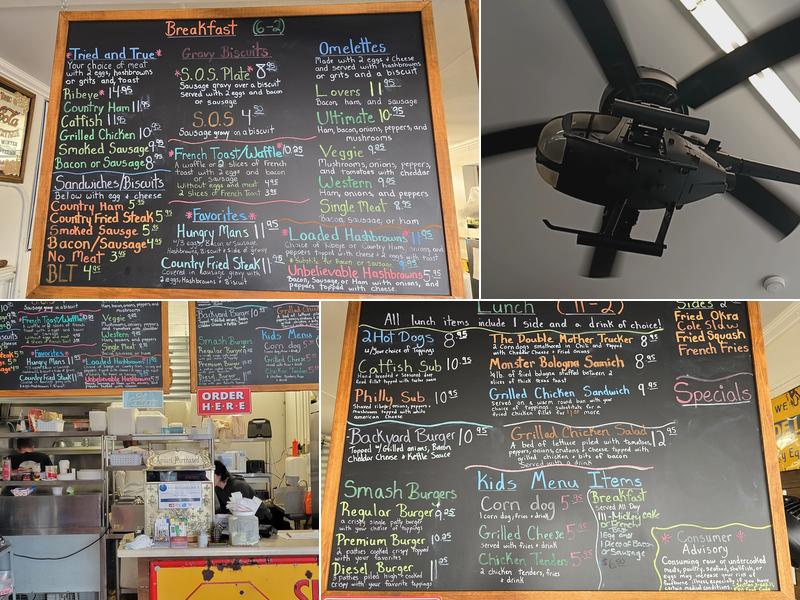 Breakfast (6-2)
*Tried and True*
Your choice of meat
with 2 eggs, hashbrowns
or grits and toast
Ribeye* 14.95
Country Ham 11.95
Catfish 11.95
Grilled Chicken 10.95
Smoked Sausage 9.95
Bacon or Sausage 8.95
Sandwiches/Biscuits
Below with egg + cheese
Country Ham 5.95
Country Fried Steak 5.95
Smoked Sausage 5.95
Bacon/Sausage 4.95
No Meat 3.45
BLT 4.95
Gravy Biscuits
*S.O.S. Plate* 8.95
Sausage gravy over a biscuit
served with 2 eggs and bacon
or sausage
S.O.S 4.50
Sausage gravy on a biscuit
*French Toast/Waffle* 10.25
A waffle or 2 slices of French
toast with 2 eggs and bacon
or sausage
Without eggs and meat 4.95
2 slices of French Toast 3.95
*Favorites*
Hungry Mans 11.95
Hashbrowns, Biscuit + side of gravy
Country Fried Steak 11.95
Covered in sausage gravy with
2 eggs, Hashbrowns + Biscuit
Omelettes
Made with 2 eggs + Cheese
and served with hashbrowns
or grits and a biscuit
Lovers 11.95
Bacon, ham, and sausage
Ultimate 10.95
Ham, bacon, onions, peppers, and
mushrooms
Veggie 9.95
Mushrooms, onions, peppers,
and tomatoes with cheddar
Western 9.95
Ham, onions, and peppers
Single Meat 8.95
Bacon, Sausage, or ham
*Loaded Hashbrowns*
Choice of Ribeye or Country Ham, onions, and
peppers topped with 2 eggs with toast
Unbelievable Hashbrowns 5.95
Bacon, Sausage, or Ham with onions, and
peppers topped with cheese
ORDER
HERE
Backyard Burger 10.95
Smash Burgers
Kids Menu
Lunch (11-2)
All lunch items include 1 side and a drink of choice!
2 Hot Dogs 8.95
w/ your choice of toppings
Catfish Sub 10.95
Philly Sub 10.95
Shaved ribeye, onions, peppers +
mushrooms topped with white
american cheese
*Backyard Burger 10.95
Topped w/ Grilled onions, Bacon,
Cheddar Cheese + Kettle Sauce
Smash Burgers
Regular Burger 9.25
a crispy single patty burger
with your choice of toppings
Premium Burger 10.95
2 patties cooked crispy topped
with your favorites
Diesel Burger 11.95
3 patties piled high-cooked
crispy with your favorite toppings
The Double Mother Trucker 8.95
2 Corn dogs smothered in Chili and topped
with Cheddar Cheese + Fried onions
Monster Bologna Samich 8.95
slices of thick texas toast
Grilled Chicken Sandwich 9.95
served on a warm round bun with your
choice of toppings substitute for a
fried chicken filet for 1.00 more
Grilled Chicken Salad 12.95
A bed of lettuce piled with tomatoes,
peppers, onions, crutons + cheese topped with
grilled chicken + bits of bacon
Served with a drink
Kids Menu Items
Corn dog 5.95
1 corn dog, fries + drink
Grilled Cheese 5.95
served with fries + drink
Chicken Tenders 5.95
2 chicken tenders, fries
+ drink
Breakfast
served All Day
1 Piece of Bacon
or Sausage
Sides
Fried Okra
Cole Slaw
Fried Squash
French Fries
Specials
* Consumer *
Advisory
Consuming raw or undercooked
meats, poultry, seafood, shellfish, or
eggs may increase your risk of
foodborne illness, especially if you have
certain medical conditions.